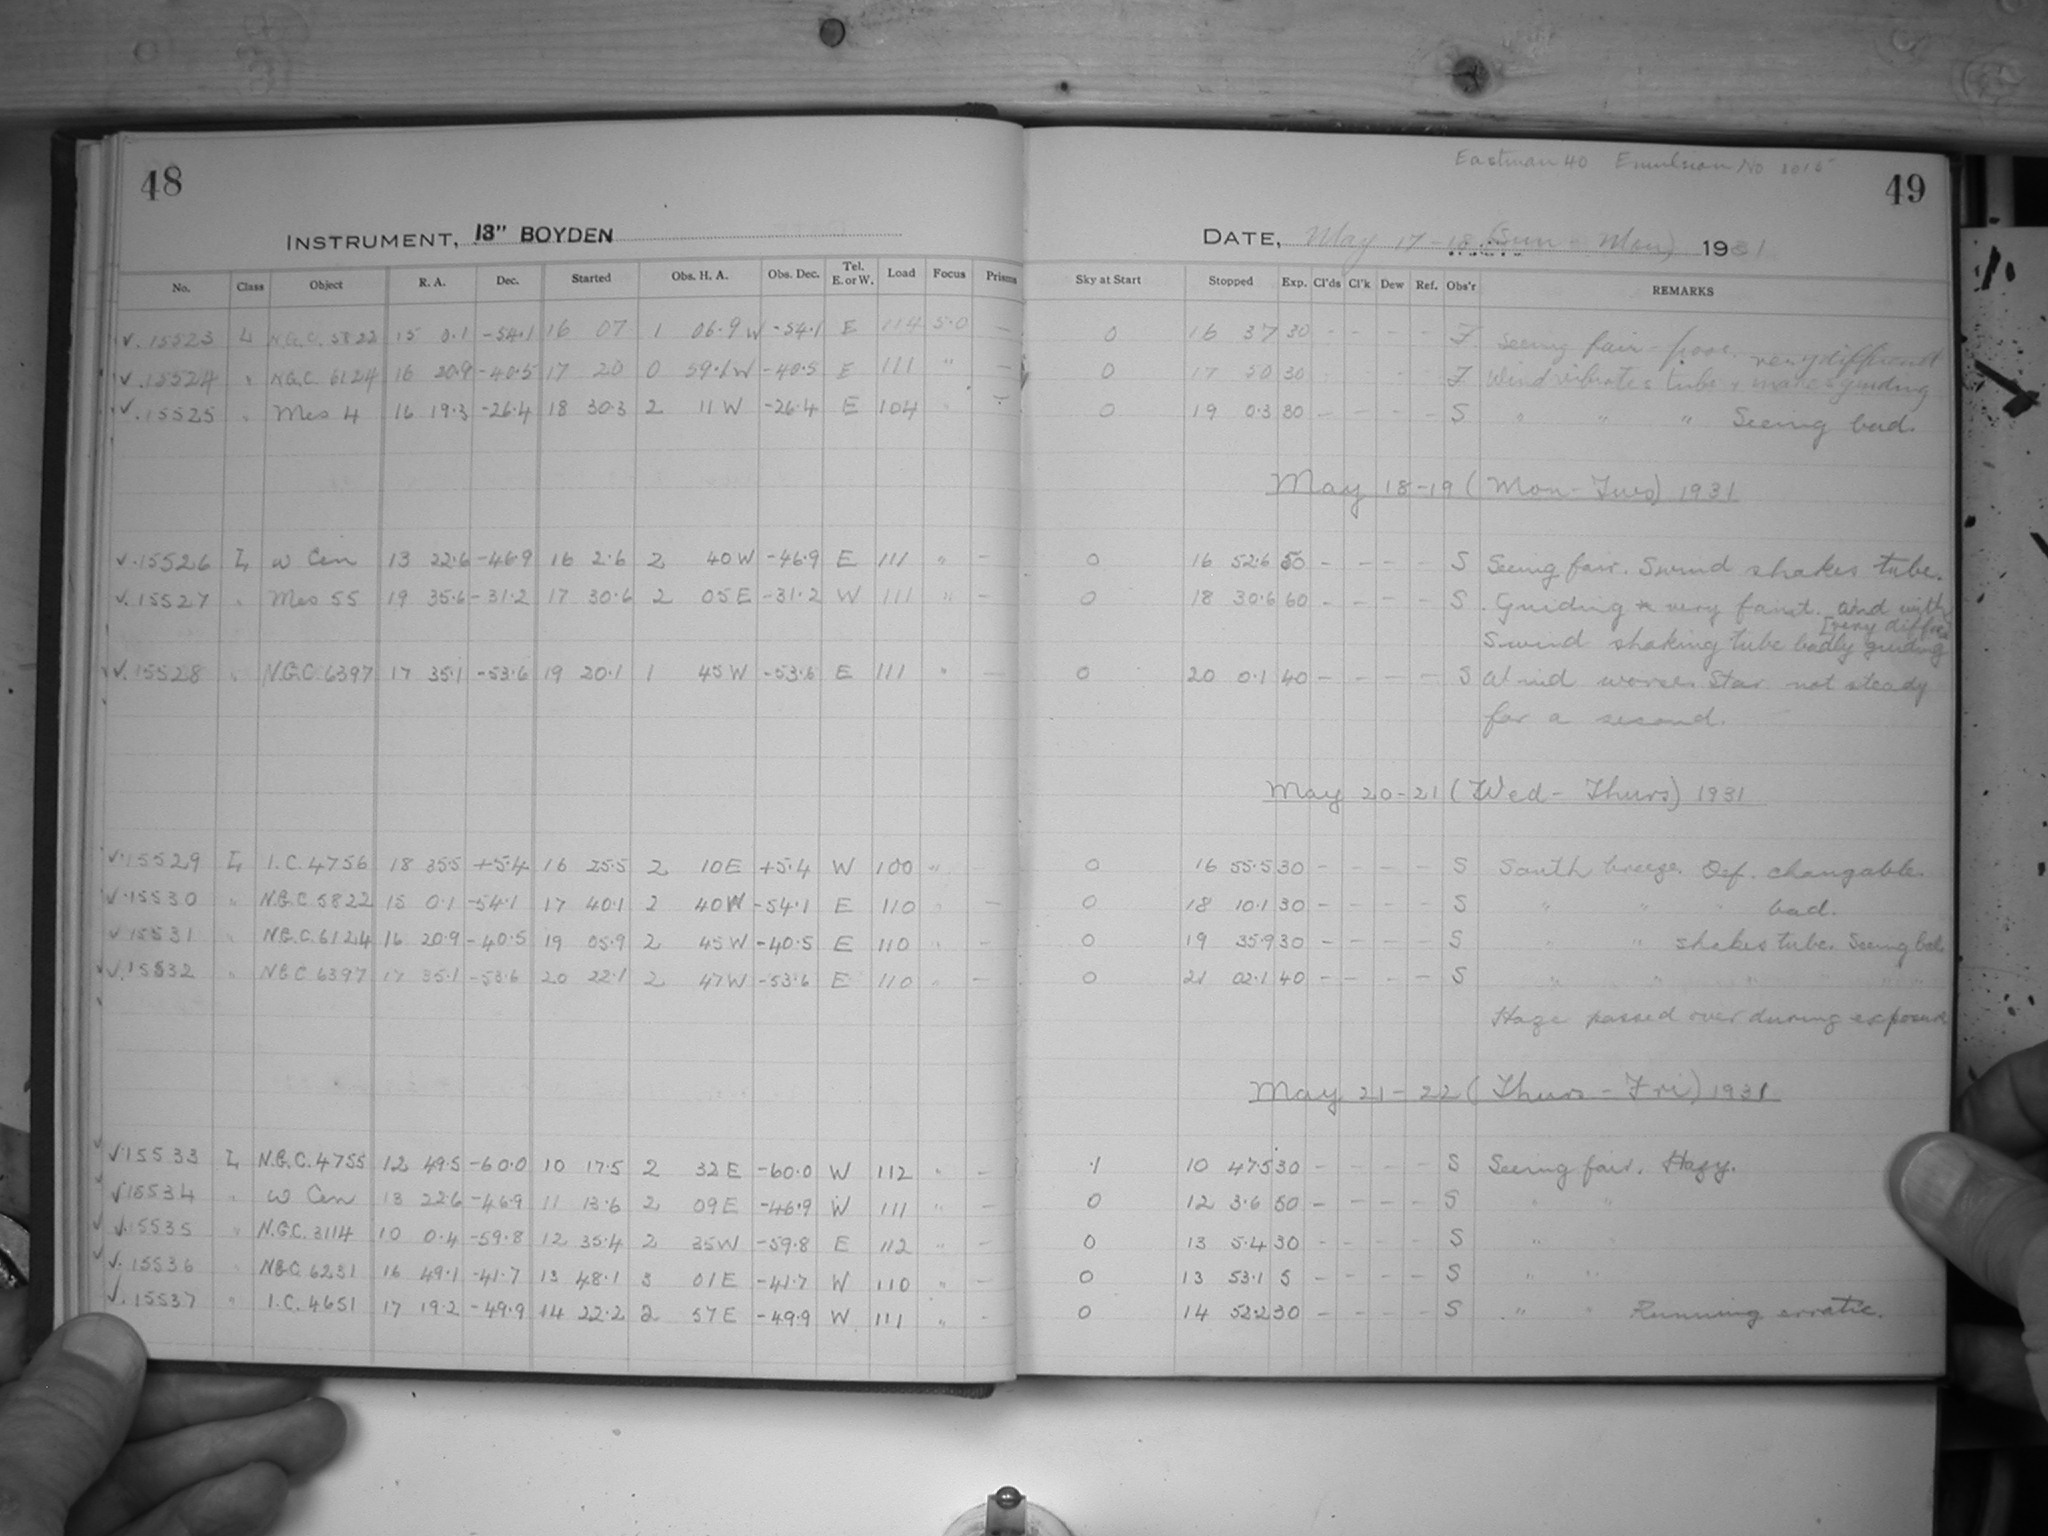 Eastman 40 Emulsion No
48
49
INSTRUMENT, 13" BOYDEN
DATE, May 17-18 (Sun - Mon) 1931
No. Class Object R. A. Dec. Started Obs. H. A. Obs. Dec. Tel. E. or W. Load Focus Prisms Sky at Start Stopped Exp. Cl'ds Cl'k Dew Ref. Obs'r REMARKS
✓. 15523 L N.G.C. 5822 15 0.1 -54.1 16 07 1 06.9 W -54.1 E 114 5.0 — 0 16 37 30 - - - - F Seeing fair - poor.
✓. 15524 " N.G.C. 6124 16 20.9 -40.5 17 20 0 59.1 W -40.5 E 111 " — 0 17 50 30 F Wind vibrates tube & makes guiding very difficult
✓. 15525 " Mes 4 16 19.3 -26.4 18 30.3 2 11 W -26.4 E 104 " — 0 19 0.3 30 - - - - S " " " Seeing bad.
May 18-19 (Mon-Tues) 1931
✓. 15526 L ω Cen 13 22.6 -46.9 16 2.6 2 40 W -46.9 E 111 " — 0 16 52.6 50 - - - - S Seeing fair. S wind shakes tube.
✓. 15527 " Mes 55 19 35.6 -31.2 17 30.6 2 05 E -31.2 W 111 " — 0 18 30.6 60 - - - - S Guiding * very faint. and with
S wind shaking tube badly guiding [very diffic
✓. 15528 " N.G.C. 6397 17 35.1 -53.6 19 20.1 1 45 W -53.6 E 111 " — 0 20 0.1 40 - - - - S Wind worse. Star not steady
for a second.
May 20-21 (Wed - Thurs) 1931
✓. 15529 L I.C. 4756 18 35.5 +5.4 16 25.5 2 10 E +5.4 W 100 " 0 16 55.5 30 - - - - S South breeze. Def. changable.
✓. 15530 " N.G.C. 5822 15 0.1 -54.1 17 40.1 2 40 W -54.1 E 110 " — 0 18 10.1 30 - - - - S " " " bad.
✓. 15531 " N.G.C. 6124 16 20.9 -40.5 19 05.9 2 45 W -40.5 E 110 " - 0 19 35.9 30 - - - - S " " shakes tube. Seeing bad.
✓. 15532 " N.G.C. 6397 17 35.1 -53.6 20 22.1 2 47 W -53.6 E 110 " — 0 21 02.1 40 - - - - S " " " " "
Haze passed over during exposure
May 21-22 (Thurs - Fri) 1931
✓. 15533 L N.G.C. 4755 12 49.5 -60.0 10 17.5 2 32 E -60.0 W 112 " - .1 10 47.5 30 - - - - S Seeing fair. Hazy.
✓ 15534 " ω Cen 13 22.6 -46.9 11 13.6 2 09 E -46.9 W 111 " - 0 12 3.6 50 - - - - S " "
✓. 15535 " N.G.C. 3114 10 0.4 -59.8 12 35.4 2 35 W -59.8 E 112 " - 0 13 5.4 30 - - - - S "
✓. 15536 " N.G.C. 6231 16 49.1 -41.7 13 48.1 3 01 E -41.7 W 110 " - 0 13 53.1 5 - - - - S " "
✓. 15537 " I.C. 4651 17 19.2 -49.9 14 22.2 2 57 E -49.9 W 111 " - 0 14 52.2 30 - - - - S " " Running erratic.